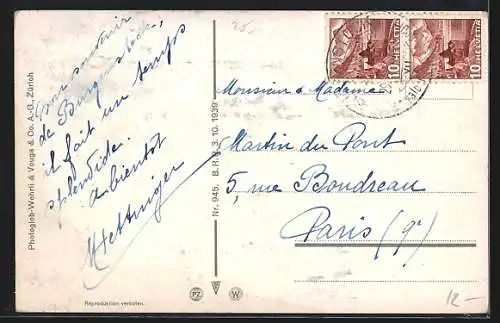 25.-
Bon souvenir
de Burgenstock,
il fait un temps
splendide.
a bientot
M Hettniger
Photoglob-Wehrli & Vouga & Co. A.-G., Zürich
Nr. 945. B. R. B. 3. 10. 1939
HELVETIA 10
HELVETIA 10
Monsieur & Madame
Martin du Pont
5, rue Boudreau
Paris (9e)
PZ W
Reproduction verboten.
12-